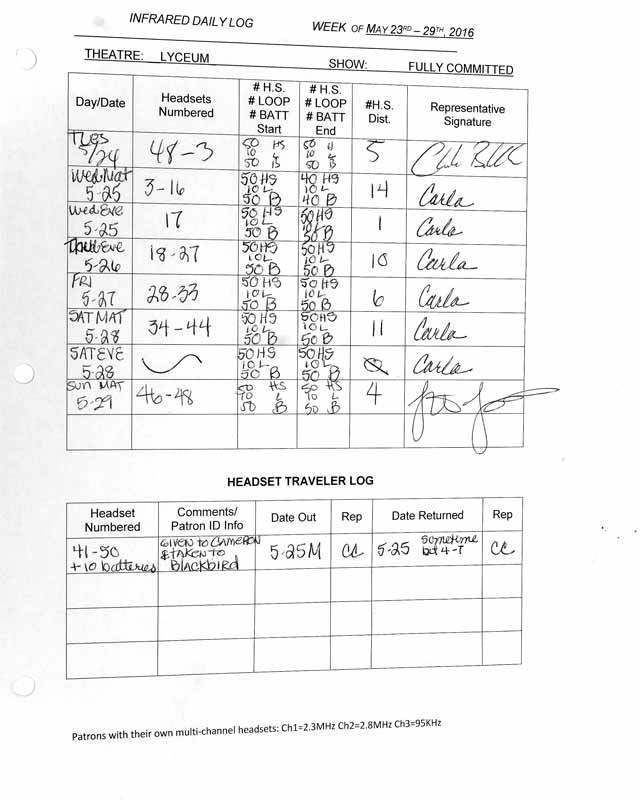 INFRARED DAILY LOG WEEK OF MAY 23RD – 29TH, 2016
THEATRE: LYCEUM SHOW: FULLY COMMITTED
Day/Date Headsets Numbered # H.S. # LOOP # BATT Start # H.S. # LOOP # BATT End #H.S. Dist. Representative Signature
TUES 5/24 48-3 50 HS 10 L 50 B 50 H 10 L 50 B 5
Wed Mat 5-25 3-16 50 HS 10 L 50 B 40 HS 10 L 40 B 14 Carla
Wed Eve 5-25 17 50 HS 10 L 50 B 50 HS 10 L 50 B 1 Carla
Thu Eve 5-26 18-27 50 HS 10 L 50 B 50 HS 10 L 50 B 10 Carla
FRI 5-27 28-33 50 HS 10 L 50 B 50 HS 10 L 50 B 6 Carla
SAT MAT 5-28 34-44 50 HS 10 L 50 B 50 HS 10 L 50 B 11 Carla
SAT EVE 5-28 50 HS 10 L 50 B 50 HS 10 L 50 B Carla
SUN MAT 5-29 46-48 50 HS 10 L 50 B 50 HS 10 L 50 B 4
HEADSET TRAVELER LOG
Headset Numbered Comments/ Patron ID Info Date Out Rep Date Returned Rep
41-50 + 10 batteries GIVEN TO CAMERON & TAKEN TO BLACKBIRD 5-25 M CC 5-25 sometime bet 4-7 CC
Patrons with their own multi-channel headsets: Ch1=2.3MHz Ch2=2.8MHz Ch3=95KHz